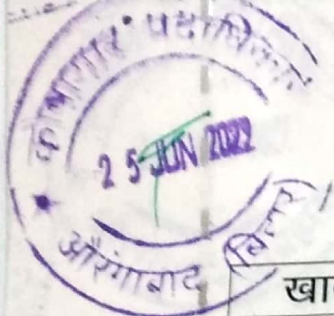 कोषागार पदाधिकारी
25 JUN 2022
औरंगाबाद (बिहार)